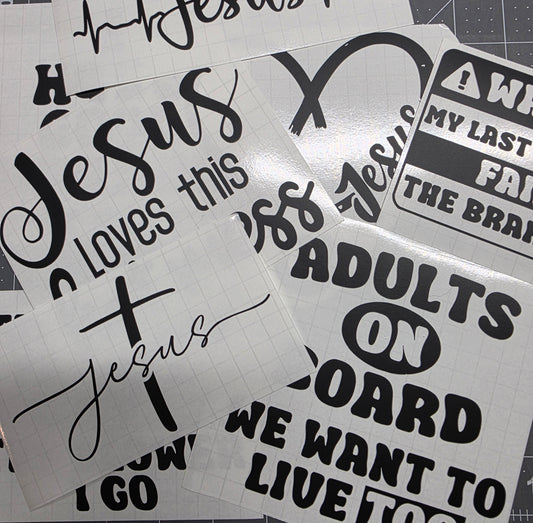 Jesus
Jesus
loves this
Jesus
MY LAST
THE BRA
ess
Jesus
ADULTS
ON
BOARD
WE WANT TO
LIVE TOO
I GO